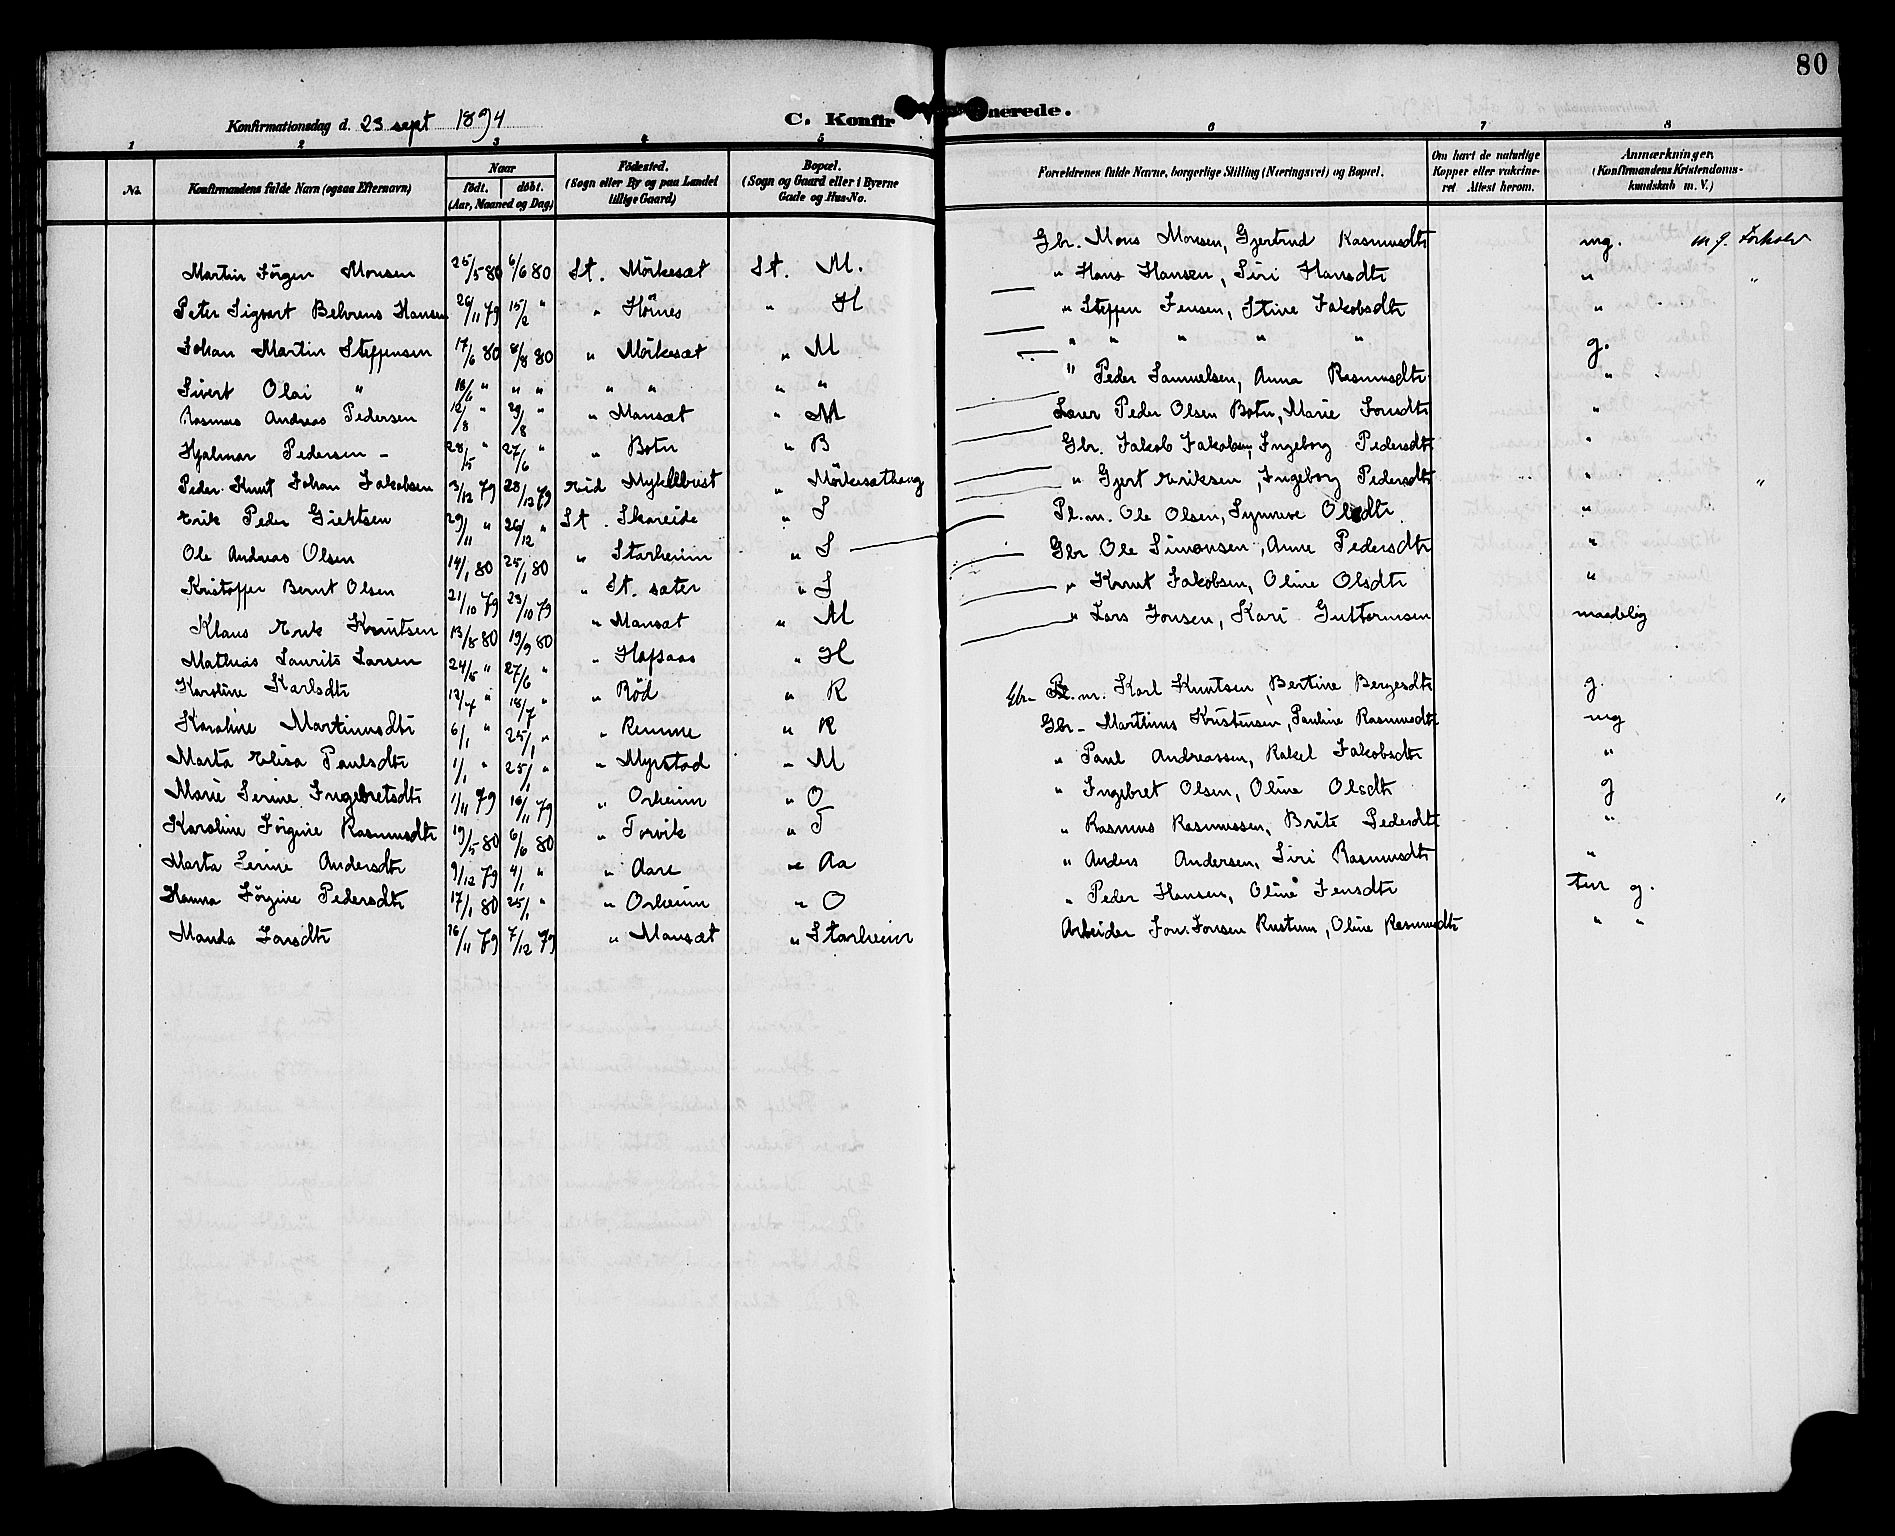 80
Konfirmationsdag d. 23 sept 1894
C. Konfirmerede.
1 2 3 4 5 6 7 8
No.
Konfirmandens fulde Navn (ogsaa Efternavn)
Naar
födt. döbt.
(Aar, Maaned og Dag)
Födested.
(Sogn eller By og paa Landet
tillige Gaard)
Bopæl.
(Sogn og Gaard eller i Byerne
Gade og Hus-No.
Forældrenes fulde Navne, borgerlige Stilling (Næringsvei) og Bopæl.
Om havt de naturlige
Kopper eller vakcine-
ret. Attest herom.
Anmærkninger.
(Konfirmandens Kristendoms-
kundskab m. V.)
Martin Jörgen Monsen 25/5 80 6/6 80 St. Mörkesæt St. M. Gbr. Mons Monsen, Gjertrud Rasmusdtr mg. m g. Forhold
Peter Sigvart Behrens Hansen 26/11 79 15/2 " " Hörnes " H " Hans Hansen, Siri Hansdtr " "
Johan Martin Steffensen 17/6 80 8/8 80 " Mörkesæt " M " Steffen Jensen, Stine Jakobsdtr "
Sivert Olai " 18/6 " " " " " " " " " " " " g.
Rasmus Andreas Pedersen 12/8 " 29/8 " " Mansæt " M " Peder Samuelsen, Anna Rasmusdtr "
Hjalmar Pedersen - 28/5 " 27/6 " " Botn " B Lærer Peder Olsen Botn, Marie Jonsdtr "
Peder Knut Johan Jakobsen 3/12 79 28/12 79 Eid Myklebust " Mörkesæthaug Gbr. Jakob Jakobsen, Ingeborg Pedersdtr "
Erik Peder Giertsen 29/11 " 26/12 " St. Skareide " S " Gjert Eriksen, Ingeborg Pedersdtr " "
Ole Andreas Olsen 14/1 80 25/1 80 " Starheim " S Pl.m. Ole Olsen, Synneve Olsdtr
Kristoffer Bernt Olsen 21/10 79 23/10 79 " St. sæter " S Gbr Ole Simonsen, Anne Pedersdtr "
Klaus Erik Knutsen 13/8 80 19/9 80 " Mansæt " M " Knut Jakobsen, Oline Olsdtr "
Mathias Laurits Larsen 24/5 " 27/6 " " Hafsaas " H " Lars Jonsen, Kari Guttormsen maadelig
Karoline Karlsdtr 12/7 " 18/7 " " Röd " R Gbr. Pl.m. Karl Knutsen, Bertine Bergesdtr g.
Karoline Martinusdtr 6/1 " 25/1 " " Remme " R Gbr - Marthinus Kristensen, Pauline Rasmusdtr mg
Marta Elisa Paulsdtr 1/1 " 25/1 " " Myrstad " M " Paul Andreassen, Rakel Jakobsdtr "
Marie Serine Ingebretsdtr 1/11 79 16/11 79 " Orheim " O " Ingebret Olsen, Oline Olsdtr g "
Karoline Jörgine Rasmusdtr 19/5 80 6/6 80 " Torvik " T " Rasmus Rasmussen, Brite Pedersdtr "
Marta Serine Andersdtr 9/12 79 4/1 " " Aare " Aa " Anders Andersen, Siri Rasmusdtr "
Hanna Jörgine Pedersdtr 17/1 80 25/1 " " Orheim " O " Peder Hansen, Oline Jensdtr tem g.
Manda Jonsdtr 16/11 79 7/12 79 " Mansæt " Starheim Arbeider Jon Jonsen Rustum, Oline Rasmusdtr " "